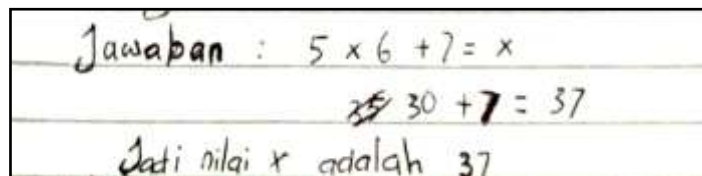 Jawaban : 5 x 6 + 7 = x
30 + 7 = 37
Jadi nilai x adalah 37